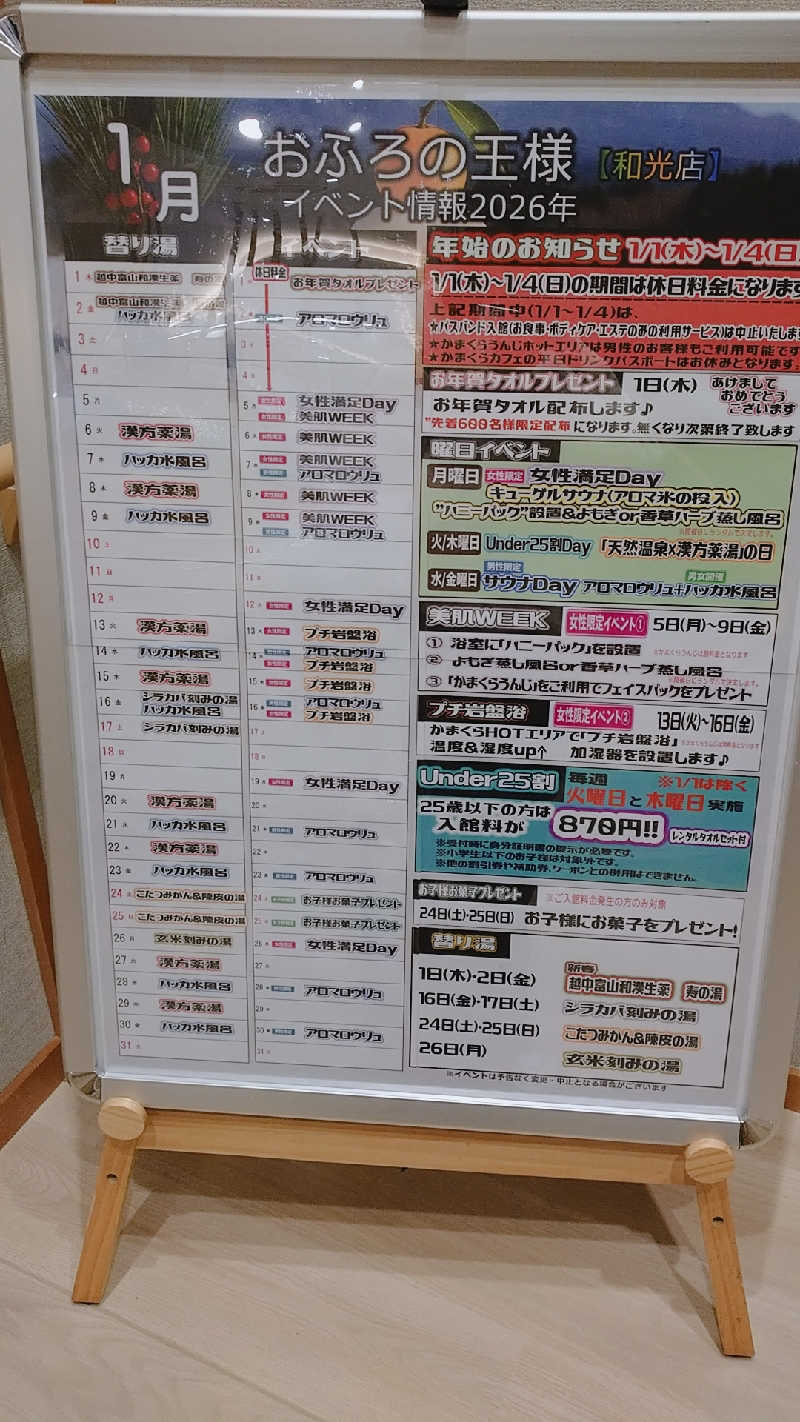 1月
おふろの王様【和光店】
イベント情報2026年
替り湯
1 木 越中富山和漢生薬 寿の湯
2 金 越中富山和漢生薬
ハッカ水風呂
3 土
4 日
5 月
6 火 漢方薬湯
7 水 ハッカ水風呂
8 木 漢方薬湯
9 金 ハッカ水風呂
10 土
11 日
12 月
13 火 漢方薬湯
14 水 ハッカ水風呂
15 木 漢方薬湯
16 金 シラカバ刻みの湯
ハッカ水風呂
17 土 シラカバ刻みの湯
18 日
19 月
20 火 漢方薬湯
21 水 ハッカ水風呂
22 木 漢方薬湯
23 金 ハッカ水風呂
24 土 こたつみかん&陳皮の湯
25 日 こたつみかん&陳皮の湯
26 月 玄米刻みの湯
27 火 漢方薬湯
28 水 ハッカ水風呂
29 木 漢方薬湯
30 金 ハッカ水風呂
31 土
イベント
休日料金
1 お年賀タオルプレゼント
2 アロマロウリュ
3
4
5 女性満足Day
美肌WEEK
6 美肌WEEK
7 美肌WEEK
アロマロウリュ
8 美肌WEEK
9 美肌WEEK
アロマロウリュ
10
11
12 女性満足Day
13 プチ岩盤浴
14 アロマロウリュ
プチ岩盤浴
15 プチ岩盤浴
16 アロマロウリュ
プチ岩盤浴
17
18
19 女性満足Day
20
21 アロマロウリュ
22
23 アロマロウリュ
24 お子様お菓子プレゼント
25 お子様お菓子プレゼント
26 女性満足Day
27
28 アロマロウリュ
29
30 アロマロウリュ
31
年始のお知らせ 1/1(木)~1/4(日
1/1(木)~1/4(日)の期間は休日料金になります
上記期間中(1/1~1/4)は、
★パスバンド入館(お食事・ボディケア・エステのみの利用サービス)は中止いたします
★かまくらうんじホットエリアは男性のお客様もご利用可能です
★かまくらカフェの平日ドリンクパスポートはお休みとなります
お年賀タオルプレゼント 1日(木) あけまして
おめでとう
ございます
お年賀タオル配布します♪
"先着600名様限定配布"になります。無くなり次第終了致します
曜日イベント
月曜日 女性限定 女性満足Day
キューゲルサウナ(アロマ氷の投入)
"ハニーパック"設置&よもぎor香草ハーブ蒸し風呂
火/木曜日 Under25割Day 「天然温泉×漢方薬湯」の日
水/金曜日 男性限定 サウナDay アロマロウリュ+ハッカ水風呂 男女開催
美肌WEEK 女性限定イベント① 5日(月)~9日(金)
① 浴室に「ハニーパック」を設置
② よもぎ蒸し風呂or香草ハーブ蒸し風呂
③ 「かまくらうんじ」をご利用でフェイスパックをプレゼント
プチ岩盤浴 女性限定イベント② 13日(火)~16日(金)
かまくらHOTエリアで「プチ岩盤浴」
温度&湿度up↑ 加湿器を設置します♪
Under25割 毎週 ※1/1は除く
火曜日と木曜日実施
25歳以下の方は
入館料が 870円!! レンタルタオルセット付
※受付時に身分証明書の提示が必要です。
※小学生以下のお子様は対象外です。
※他の割引券や補助券、クーポンとの併用はできません。
お子様お菓子プレゼント ※ご入館料金発生の方のみ対象
24日(土)・25日(日) お子様にお菓子をプレゼント!
替り湯
1日(木)・2日(金) 新春 越中富山和漢生薬 寿の湯
16日(金)・17日(土) シラカバ刻みの湯
24日(土)・25日(日) こたつみかん&陳皮の湯
26日(月) 玄米刻みの湯
※イベントは予告なく変更・中止となる場合がございます